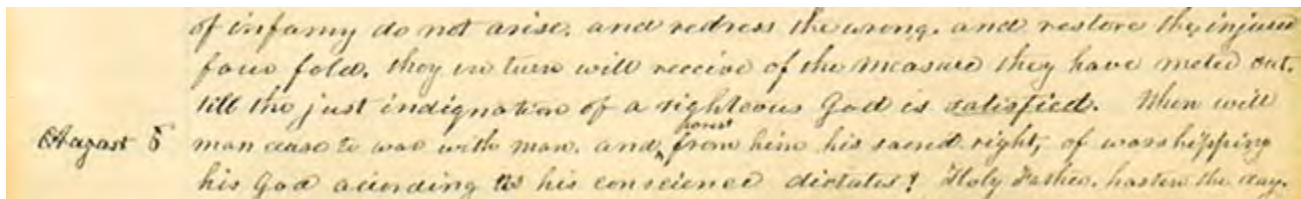 of infamy do not arise, and redress the wrong, and restore the injured
four fold, they in turn will receive of the measure they have meted out,
till the just indignation of a righteous God is satisfied. When will
August 5 man cease to war with man, and wrest from him his sacred right, of worshipping
his God according to his conscience dictates? Holy Father, hasten the day.